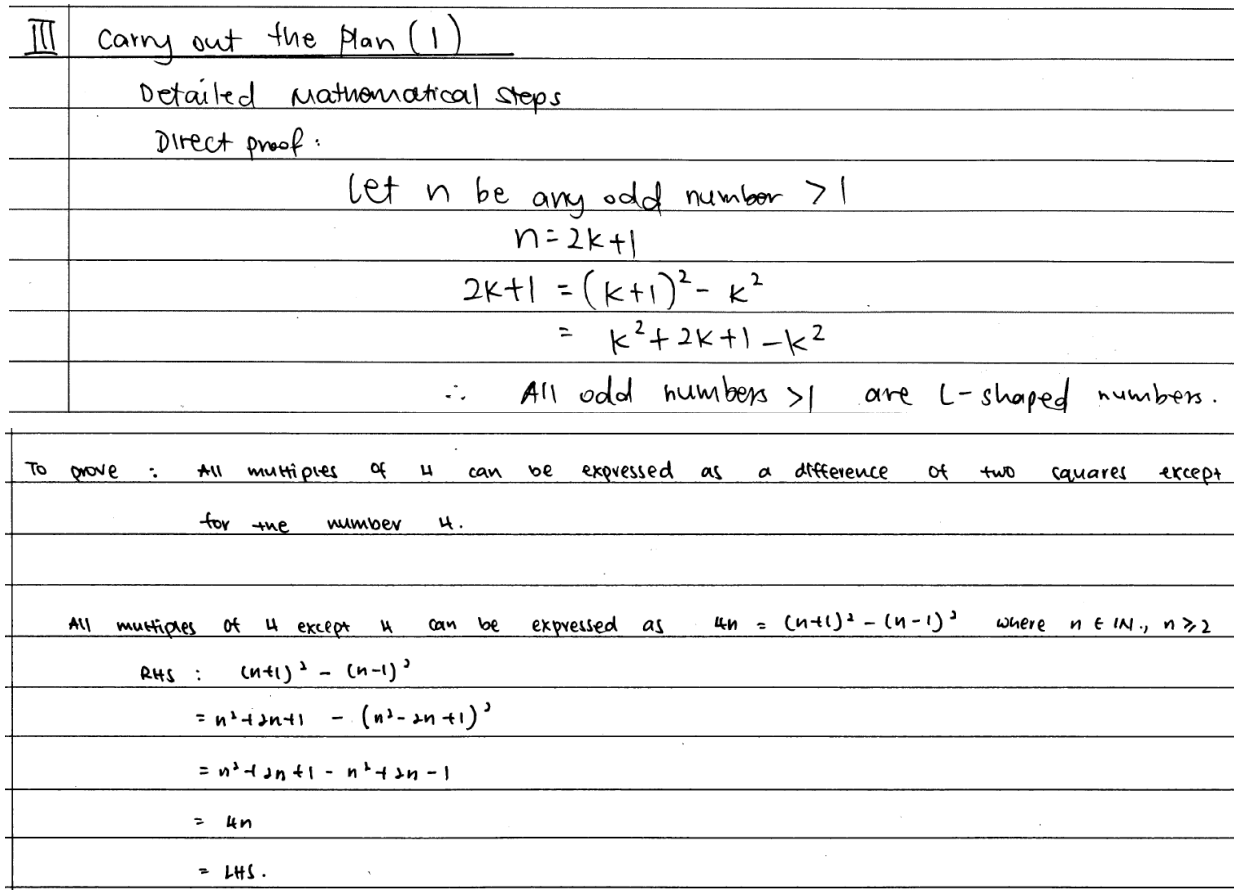 III Carry out the plan (1)
Detailed Mathematical steps
Direct proof:
Let n be any odd number >1
n=2k+1
2k+1 = (k+1)² - k²
= k²+2k+1-k²
∴ All odd numbers >1 are L-shaped numbers.
To prove : All multiples of 4 can be expressed as a difference of two squares except
for the number 4.
All multiples of 4 except 4 can be expressed as 4n = (n+1)² - (n-1)² where n ∈ IN., n ⩾ 2
RHS : (n+1)² - (n-1)²
= n²+2n+1 - (n²-2n+1)²
= n²+2n+1 - n²+2n-1
= 4n
= LHS.